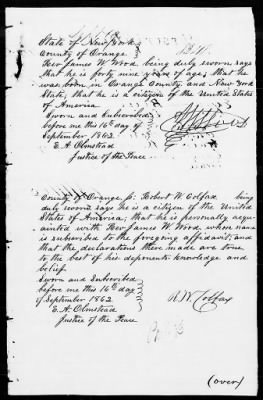 State of New York
County of Orange
Rev James W. Wood, being duly sworn says
that he is forty nine years of age; that he
was born in Orange County and New York
State; that he is a citizen of the United States
of America.
Sworn and subscribed
before me this 16th day of
September, 1862.
E. A. Olmstead
Justice of the Peace
County of Orange Robert W. Colfax being
duly sworn says he is a citizen of the United
States of America; that he is personally acqu-
ainted with Rev James W. Wood, whose name
is subscribed to the foregoing affidavit; and
that the declarations there made are true,
to the best of his deponents knowledge and
belief.
Sworn and Subscribed
before me this 16th day
of September 1862
R. W. Colfax
E. A. Olmstead
Justice of the Peace
(over)